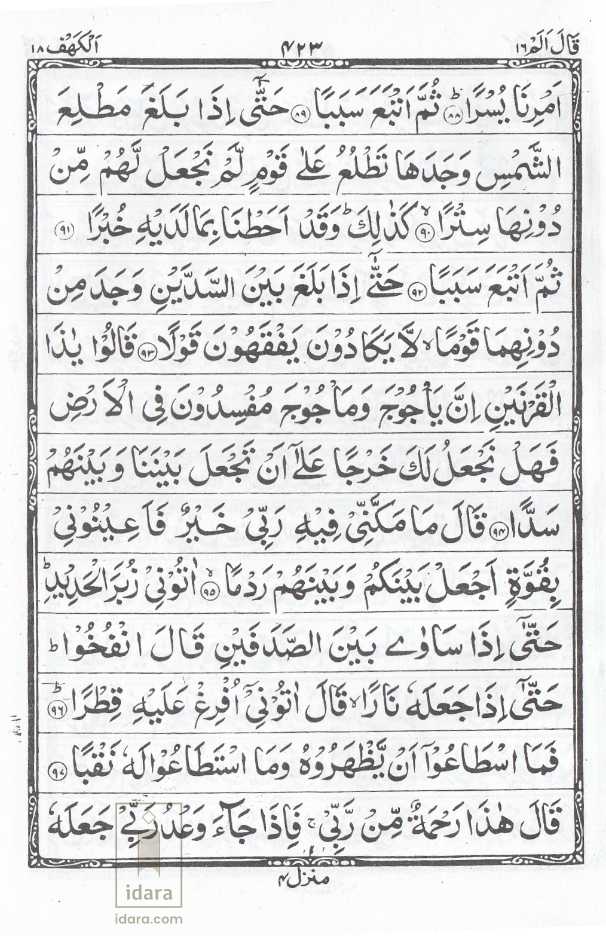 قَالَ اَلَمْ ١٦ ٤٢٣ اَلْكَهْف ١٨
اَمْرِنَا يُسْرًا ؕ ﴿٨٨﴾ ثُمَّ اَتْبَعَ سَبَبًا ﴿٨٩﴾ حَتّٰۤى اِذَا بَلَغَ مَطْلِعَ
الشَّمْسِ وَجَدَهَا تَطْلُعُ عَلٰى قَوْمٍ لَّمْ نَجْعَلْ لَّهُمْ مِّنْ
دُوْنِهَا سِتْرًا ۙ ﴿٩٠﴾ كَذٰلِكَ ؕ وَقَدْ اَحَطْنَا بِمَا لَدَيْهِ خُبْرًا ﴿٩١﴾
ثُمَّ اَتْبَعَ سَبَبًا ﴿٩٢﴾ حَتّٰۤى اِذَا بَلَغَ بَيْنَ السَّدَّيْنِ وَجَدَ مِنْ
دُوْنِهِمَا قَوْمًا ۙ لَّا يَكَادُوْنَ يَفْقَهُوْنَ قَوْلًا ﴿٩٣﴾ قَالُوْا يٰذَا
الْقَرْنَيْنِ اِنَّ يَاْجُوْجَ وَمَاْجُوْجَ مُفْسِدُوْنَ فِى الْاَرْضِ
فَهَلْ نَجْعَلُ لَكَ خَرْجًا عَلٰۤى اَنْ تَجْعَلَ بَيْنَنَا وَبَيْنَهُمْ
سَدًّا ﴿٩٤﴾ قَالَ مَا مَكَّنِّىْ فِيْهِ رَبِّىْ خَيْرٌ فَاَعِيْنُوْنِىْ
بِقُوَّةٍ اَجْعَلْ بَيْنَكُمْ وَبَيْنَهُمْ رَدْمًا ۙ ﴿٩٥﴾ اٰتُوْنِىْ زُبَرَ الْحَدِيْدِ ؕ
حَتّٰۤى اِذَا سَاوٰى بَيْنَ الصَّدَفَيْنِ قَالَ انْفُخُوْا ؕ
حَتّٰۤى اِذَا جَعَلَهٗ نَارًا ۙ قَالَ اٰتُوْنِىْۤ اُفْرِغْ عَلَيْهِ قِطْرًا ؕ ﴿٩٦﴾
فَمَا اسْطَاعُوْۤا اَنْ يَّظْهَرُوْهُ وَمَا اسْتَطَاعُوْا لَهٗ نَقْبًا ﴿٩٧﴾
قَالَ هٰذَا رَحْمَةٌ مِّنْ رَّبِّىْ ۚ فَاِذَا جَآءَ وَعْدُ رَبِّىْ جَعَلَهٗ
منزل ٤
idara
idara.com